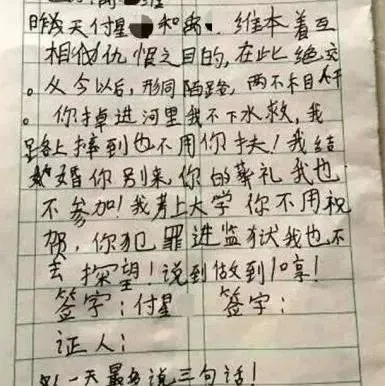 昨天付星 和禹 维本着互
相仇恨之目的,在此绝交
。从今以后,形同陌路,两不相干
。你掉进河里我不下水救,我
路上摔到也不用你扶!我结
婚你别来,你的葬礼我也
不参加!我考上大学你不用祝
贺,你犯罪进监狱我也不
去探望!说到做到10享!
签字:付星 签字:
证人:
一天最多说三句话!